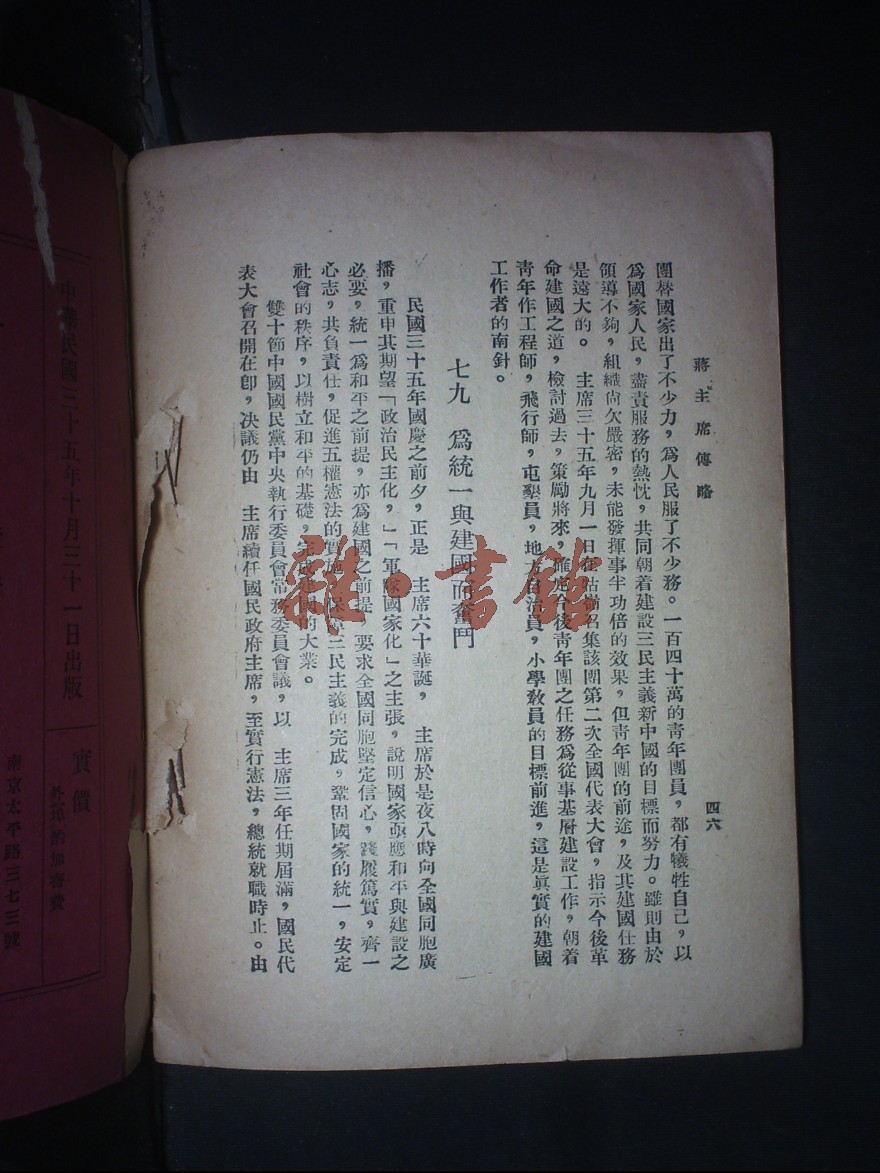 蔣主席傳略
四六
團替國家出了不少力，爲人民服了不少務。一百四十萬的靑年團員，都有犧牲自己，以
爲國家人民，盡責服務的熱忱，共同朝着建設三民主義新中國的目標而努力。雖則由於
領導不夠，組織尙欠嚴密，未能發揮事半功倍的效果，但靑年團的前途，及其建國任務
是遠大的。　主席三十五年九月一日在牯嶺召集該團第二次全國代表大會，指示今後革
命建國之道，檢討過去，策勵將來，確定今後靑年團之任務爲從事基層建設工作，朝着
靑年作工程師，飛行師，屯墾員，地方自治員，小學敎員的目標前進，這是眞實的建國
工作者的南針。
七九　爲統一與建國而奮鬥
民國三十五年國慶之前夕，正是　主席六十華誕，　主席於是夜八時向全國同胞廣
播，重申其期望「政治民主化，」「軍隊國家化」之主張，說明國家亟應和平與建設之
必要，統一爲和平之前提，亦爲建國之前提，要求全國同胞堅定信心，踐履篤實，齊一
心志，共負責任，促進五權憲法的實施，保障三民主義的完成，鞏固國家的統一，安定
社會的秩序，以樹立和平的基礎，完成建國的大業。
雙十節中國國民黨中央執行委員會常務委員會議，以　主席三年任期屆滿，國民代
表大會召開在卽，決議仍由　主席續任國民政府主席，至實行憲法，總統就職時止。由
雜·書館
中華民國三十五年十月三十一日出版
實價
外埠酌加寄費
南京太平路三七三號